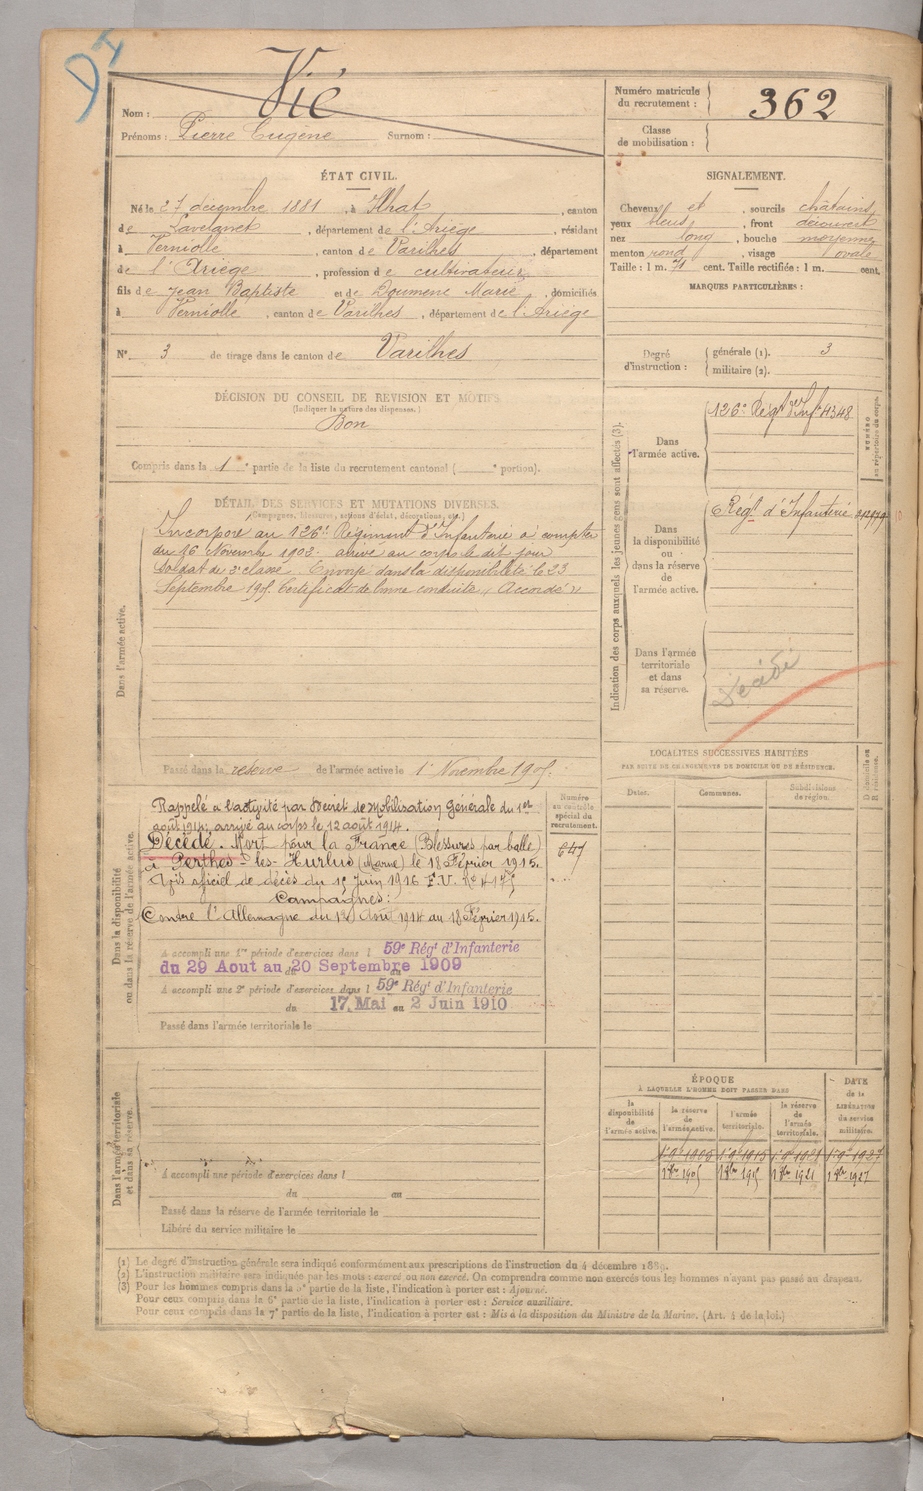 DI
Nom : Vié
Prénoms : Pierre Eugène Surnom :
Numéro matricule du recrutement : 362
Classe de mobilisation :
ÉTAT CIVIL.
Né le 27 décembre 1881, à Ilhat, canton
de Lavelanet, département de l'Ariège, résidant
à Verniolle, canton de Varilhes, département
de l'Ariège, profession de cultivateur
fils de Jean Baptiste et de Doumenc Marie, domiciliés
à Verniolle, canton de Varilhes, département de l'Ariège
N° 3 de tirage dans le canton de Varilhes
SIGNALEMENT.
Cheveux et, sourcils châtains
yeux bleus, front découvert
nez long, bouche moyenne
menton rond, visage ovale
Taille : 1 m. 71 cent. Taille rectifiée : 1 m. cent.
MARQUES PARTICULIÈRES :
Degré d'instruction : générale (1). 3
militaire (2).
DÉCISION DU CONSEIL DE REVISION ET MOTIFS
(Indiquer la nature des dispenses.)
Bon
Compris dans la 1e partie de la liste du recrutement cantonal ( e portion).
DÉTAIL DES SERVICES ET MUTATIONS DIVERSES.
(Campagnes, blessures, actions d'éclat, décorations, etc.)
Dans l'armée active.
Incorporé au 126e Régiment d'Infanterie à compter
du 16 Novembre 1902. arrivé au corps le dit jour
Soldat de 2e classe. Envoyé dans la disponibilité le 23
Septembre 1905. Certificat de bonne conduite « Accordé »
Passé dans la réserve de l'armée active le 1er Novembre 1905.
Indication des corps auxquels les jeunes gens sont affectés (3).
NUMÉRO au répertoire du corps.
Dans l'armée active.
126e Régt d'Infie 4348
Dans la disponibilité ou dans la réserve de l'armée active.
Régt d'Infanterie
Dans l'armée territoriale et dans sa réserve.
Décédé
Dans la disponibilité ou dans la réserve de l'armée active.
Numéro au contrôle spécial du recrutement.
647
Rappelé à l'activité par Décret de Mobilisation Générale du 1er
août 1914; arrivé au corps le 12 août 1914.
Décédé. Mort pour la France (Blessures par balle)
à Perthes-les-Hurlus (Marne) le 18 Février 1915.
Avis officiel de décès du 15 Juin 1916 F.U. No 4175
Campagnes :
Contre l'Allemagne du 12 Août 1914 au 18 Février 1915.
A accompli une 1re période d'exercices dans l 59e Régt d'Infanterie
du 29 Aout au 20 Septembre 1909
A accompli une 2e période d'exercices dans l 59e Régt d'Infanterie
du 17 Mai au 2 Juin 1910
Passé dans l'armée territoriale le
LOCALITÉS SUCCESSIVES HABITÉES
PAR SUITE DE CHANGEMENTS DE DOMICILE OU DE RÉSIDENCE.
Dates. Communes. Subdivisions de région. D domicile ou R résidence.
Dans l'armée territoriale et dans sa réserve.
A accompli une période d'exercices dans l
du au
Passé dans la réserve de l'armée territoriale le
Libéré du service militaire le
ÉPOQUE
À LAQUELLE L'HOMME DOIT PASSER DANS
DATE de la LIBÉRATION du service militaire.
la disponibilité de l'armée active. la réserve de l'armée active. l'armée territoriale. la réserve de l'armée territoriale.
1er 9bre 1905 1er 9bre 1915 1er 9bre 1921 1er 9bre 1927
(1) Le degré d'instruction générale sera indiqué conformément aux prescriptions de l'instruction du 4 décembre 1889.
(2) L'instruction militaire sera indiquée par les mots : exercé ou non exercé. On comprendra comme non exercés tous les hommes n'ayant pas passé au drapeau.
(3) Pour les hommes compris dans la 5e partie de la liste, l'indication à porter est : Ajourné.
Pour ceux compris dans la 6e partie de la liste, l'indication à porter est : Service auxiliaire.
Pour ceux compris dans la 7e partie de la liste, l'indication à porter est : Mis à la disposition du Ministre de la Marine. (Art. 4 de la loi.)